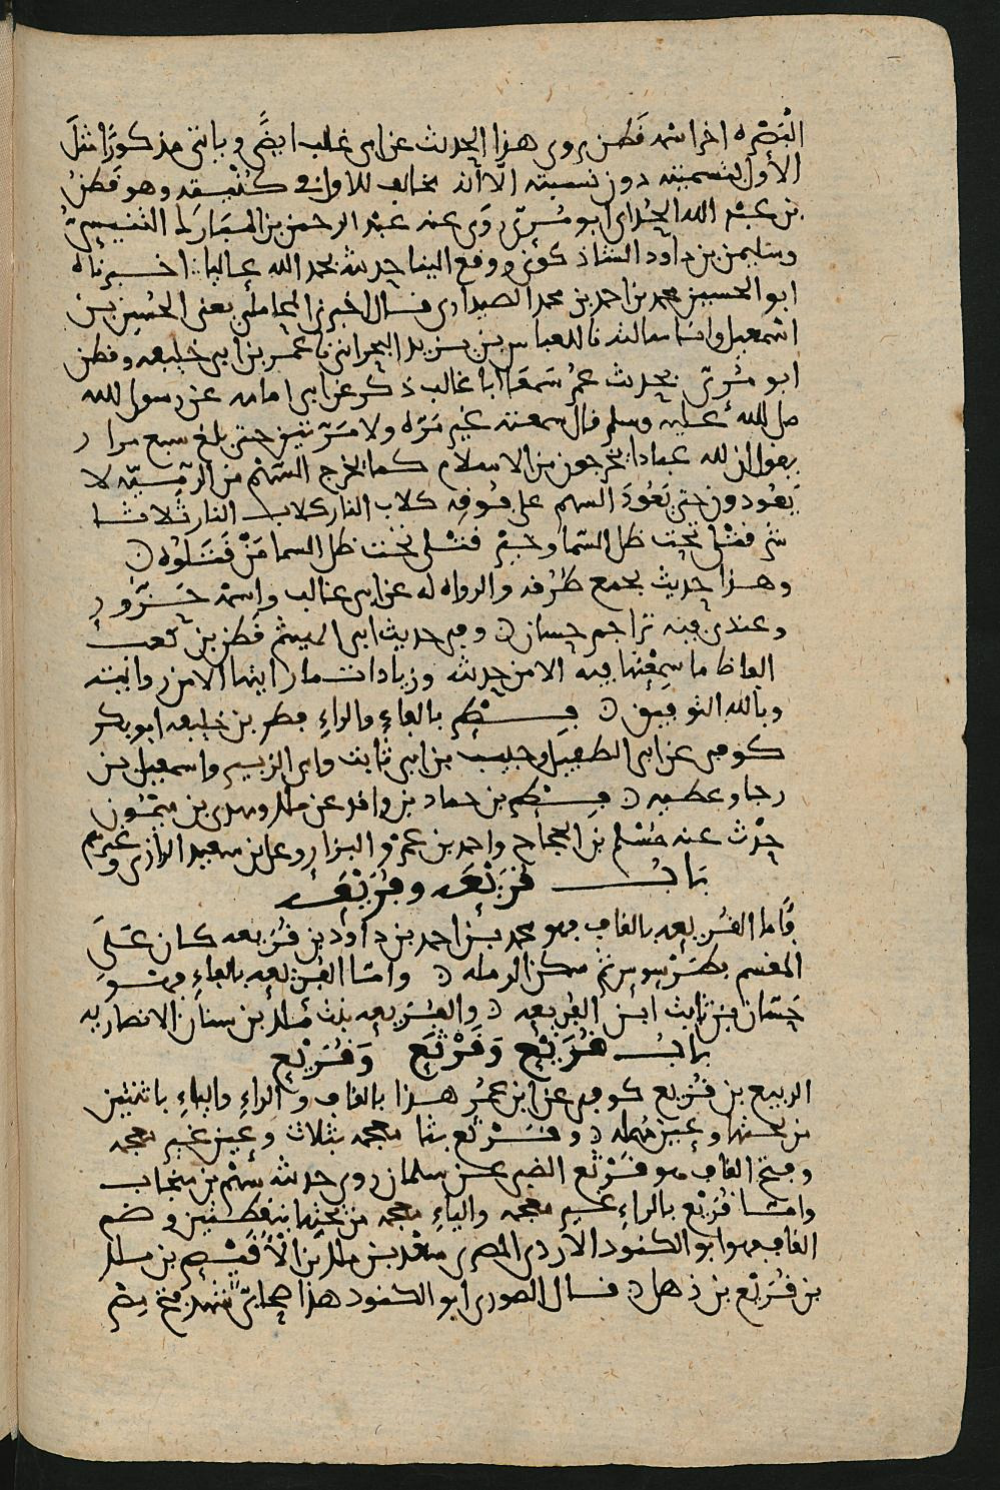 البصره اخر اسمه قطن يروي هذا الحديث عن ابي غالب ايضًا وياتي مذكورًا مثلَ
الأول بتسميته دون نسبته الّا أنه يخالف للاول في كنيته وهو قطنُ
بن عبد الله الحُدّاني ابو مُرَيّ روى عنه عبد الرحمن بن المبارك
وسليمن بن داود الشاذكوني ووقع الينا حديثه بحمد الله عاليا اخبرناه
ابو الحسين محمد بن احمد بن محمد الصيداوي قال اخبرنا المحاملي يعني الحسين بن
اسمعيل وانا سالته نا العباس بن يزيد البحراني نا عمر بن ابي خليفه وقطن
ابو مُرَيّ بحديث عمر سمعا ابا غالب ذكر عن ابي امامه عن رسول الله
صلى الله عليه وسلم قال سمعته غير مرّه ولا مرّتين حتى بلغ سبع مرار
يقول ان لله عبادا يخرجون من الاسلام كما يخرج السَّهْم من الرَّمِيَّه لا
يَعُودون حتى يَعُودَ السهم على فُوقِه كلاب النار كلاب النار ثلاثا
شر قتلى تحت ظل السَّمآ وخير قتلى تحت ظل السما مَنْ قَتَلُوه
وهذا حديث يجمع طُرقه والرواه له عن ابي غالب واسمه حَزَوَّر
وعندي فيه تراجم حسان وفي حديث ابي الهيثم قطن بن كعب
الفاظ ما سمعتها فيه الا من حديثه وزيادات ما رايتها الا من روايته
وبالله التوفيق فِطْر بالفاء والراء فطر بن خليفه ابو بكر
كوفي عن ابي الطفيل وحبيب بن ابي ثابت وابي الزبير واسمعيل بن
رجا وعطيه فِطْر بن حماد بن واقد عن ملك ومهدي بن ميمُون
حدَّث عنه مسلم بن الحجاج واحمد بن عمرو البزار وعلي بن سعيد الرازي وغيرهم
باب قُرَيْعَه وفُرَيْعَه
فامّا القُريعه بالقاف فهو محمد بن احمد بن داود بن قُرَيعه كان عَلَى
المقسم بطَرَسوس ثم سكن الرمله وامّا الفُريعه بالفاء فهو
حَسّان بن ثابت ابن الفُريعه والفُرَيعه بنت ملك بن سنان الانصاريه
باب قُرَيْع وَقَرْثَع وَقُرَيْع
الربيع بن قُزيع كوفي عن ابن عمر هذا بالقاف والزاء والياء باثنتين
من تحتها وعين مهمله وقَرْثَع بثا معجمه بثلاث وعين غير معجمه
وفتح القاف هو قَرْثَع الضبي عن سلمان روى حديثه سهم بن منجاب
وامّا قُرَيْع بالراء غير معجمه والياء معجمه من تحتها بنقطتين وضم
القاف فهو ابو الكنود الازدي المصري سعد بن ملك بن الأُقَيْصِر بن ملك
بن قُرَيْع بن ذهل قال الصوري ابو الكنود هذا صحابيّ شهد فتح مِصْر